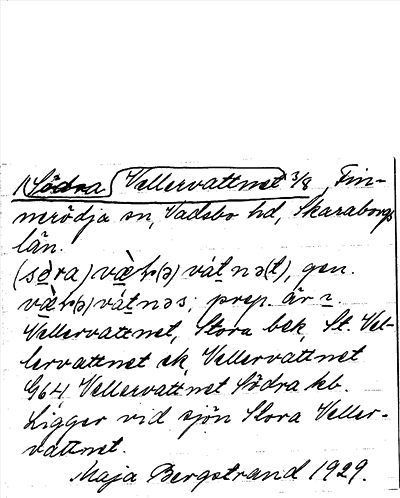 1) Södra Vellervattnet 3/8, Fin-
nerödja sn, Vadsbo hd, Skaraborgs
län.
(sø̀ra) væ̀lr(ə) vátnə(t), gen.
væ̀lr(ə) vátnəs, prep. är ɪ.
Vellervattnet, Stora bek, St. Vel-
lervattnet ek, Vellervattnet
G64, Vellervattnet Södra kb.
Ligger vid sjön Stora Veller-
vattnet.
Maja Bergstrand 1929.